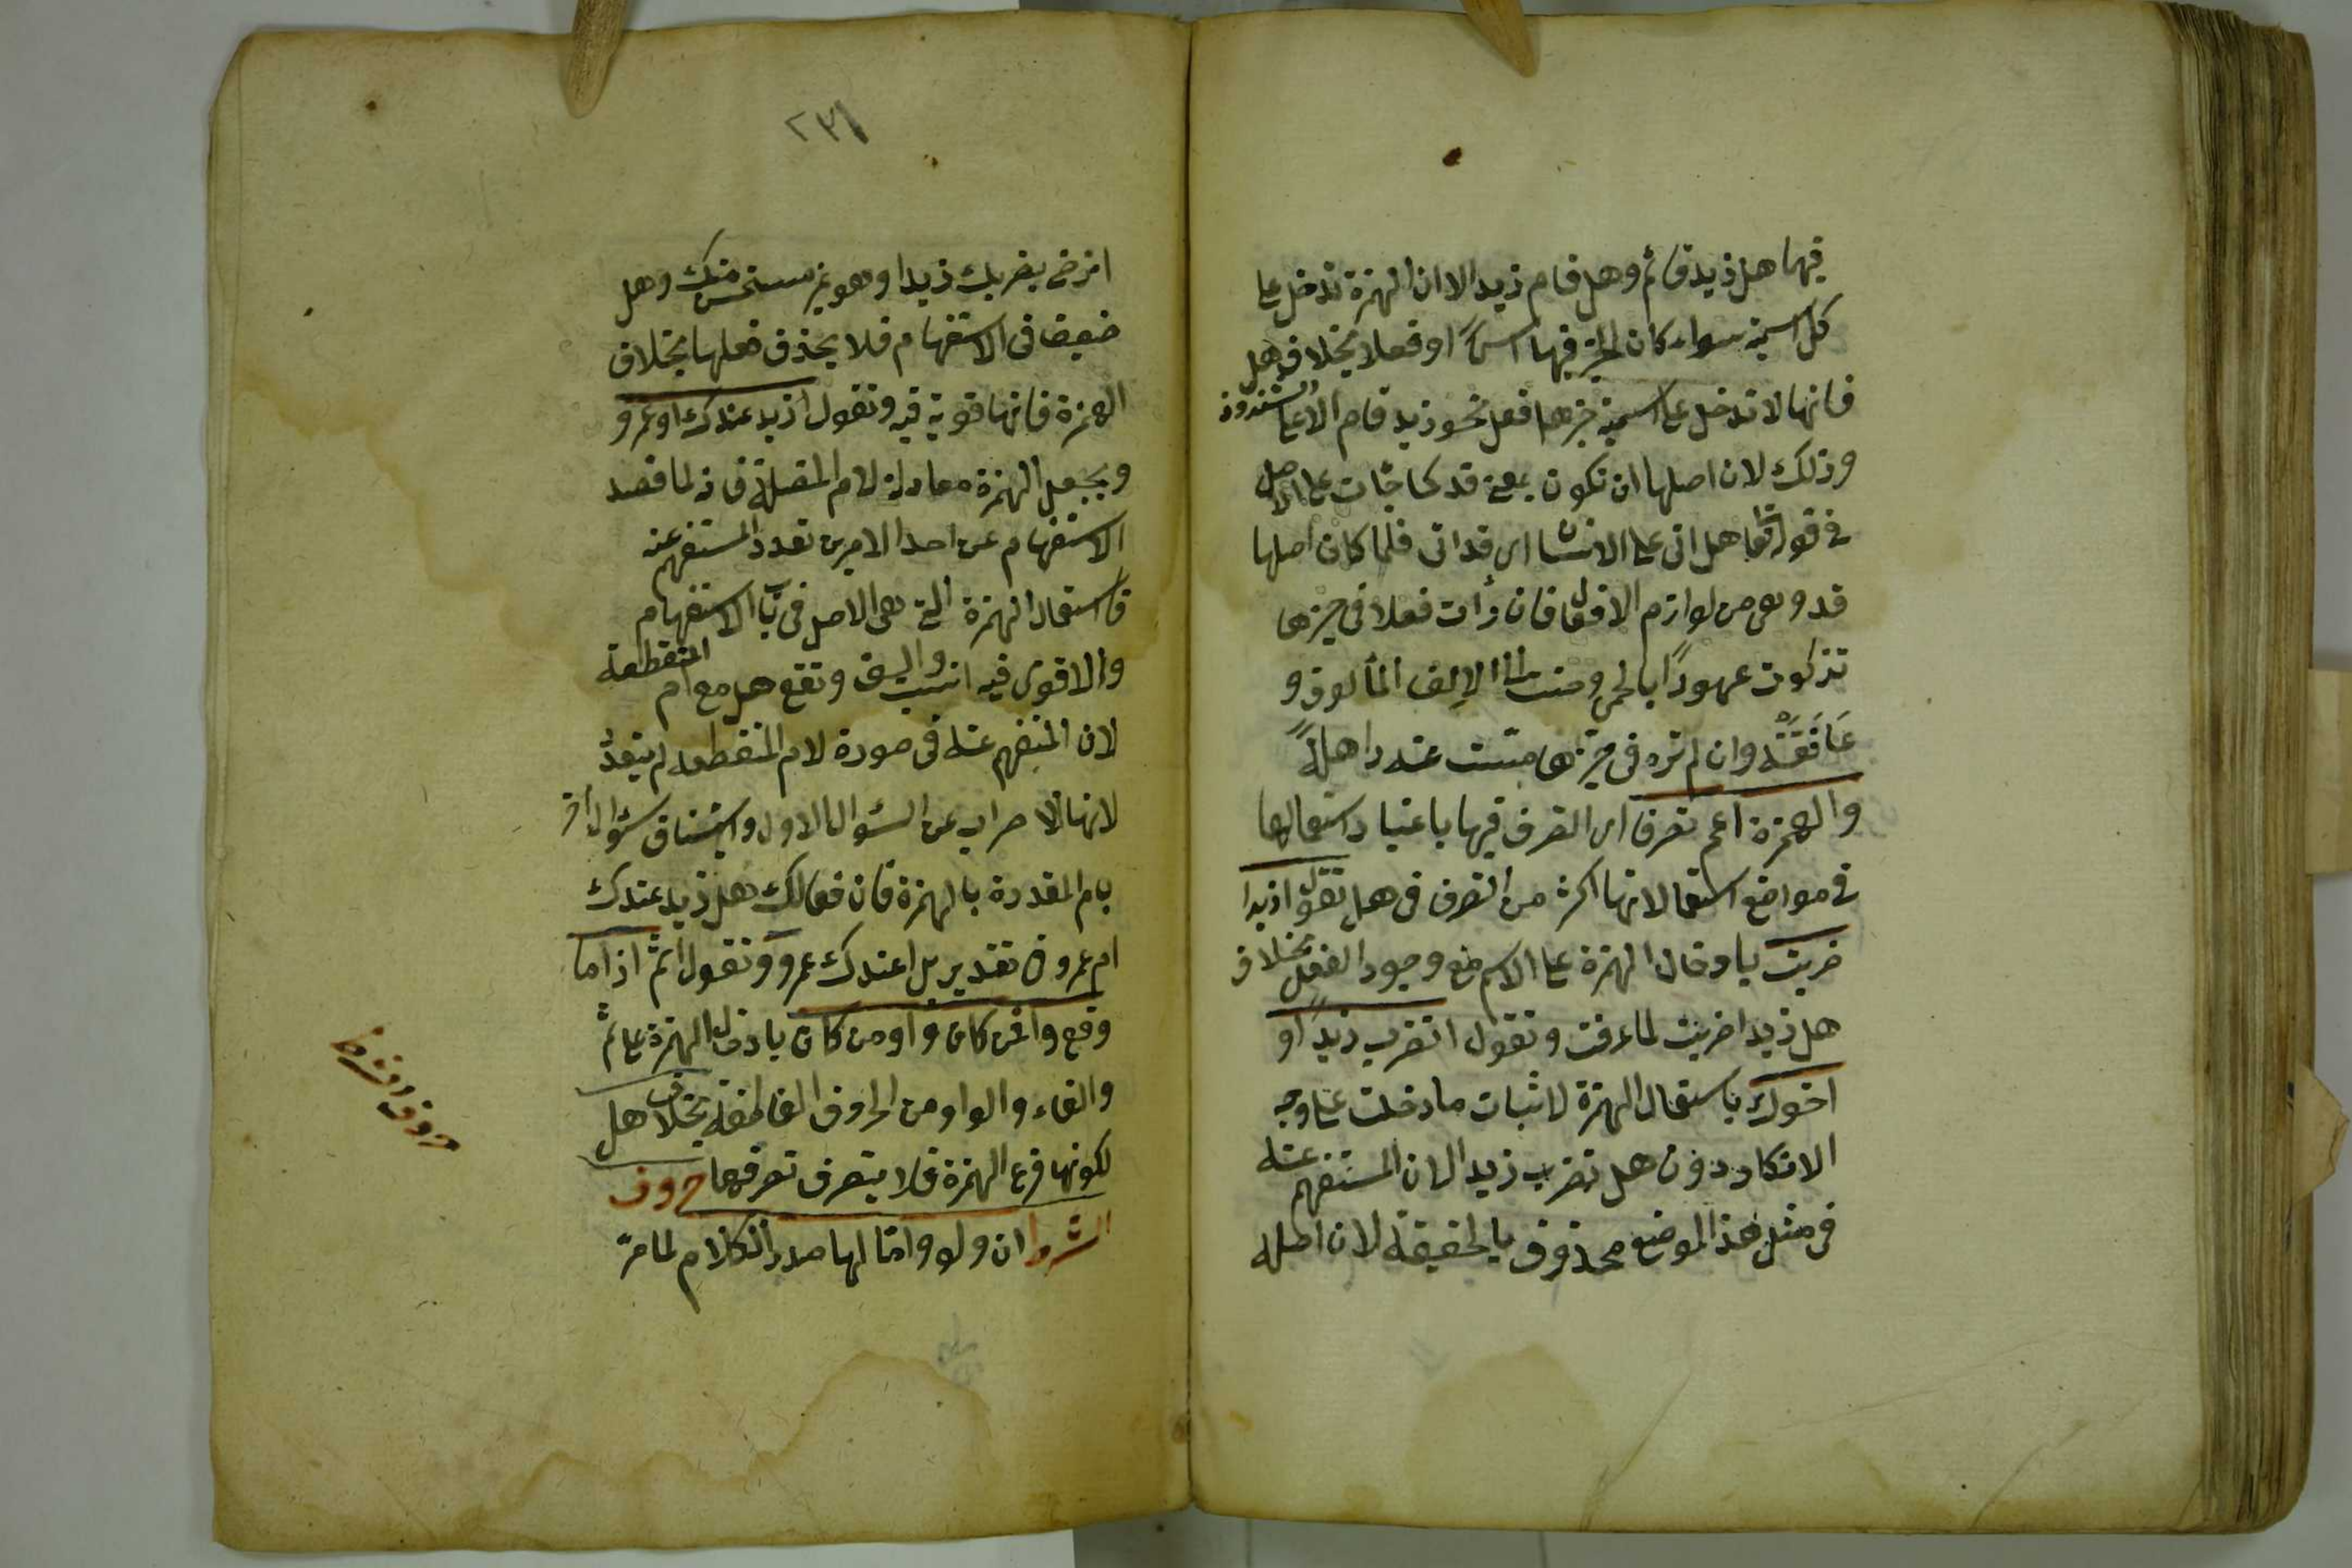 فيها هل زيد قائم وهل قام زيد الا ان الهمزة تدخل على
كل اسمية سواء كان الخبر فيها اسمًا او فعلا بخلاف هل
فانها لا تدخل على اسمية خبرها فعل نحو زيد قام الا على الشذوذ
وذلك لان اصلها ان تكون بمعنى قد كما جائت على الاصل
في قوله تعا هل اتى على الانسان اى قد اتى فلما كان اصلها
قد وهى من لوازم الافعال فان رأت فعلا فى حيزها
تذكرت عهودًا بالحمى وحنت الى الإلف المألوف و
عَانَقَتْه وان لم تره فى حيزها تسلت عنه ذاهلةً
والهمزة اعم تصرفا اى التصرف فيها باعتبار استعمالها
في مواضع استعمالاتها اكثر من التصرف فى هل تقول ازيدا
ضربت بادخال الهمزة على الاسم مع وجود الفعل بخلاف
هل زيدا ضربت لما عرفت وتقول اتضرب زيدًا و
اخوك باستعمال الهمزة لاثبات ما دخلت على وجه
الانكار دون هل تضرب زيدا لان المستفهم عنه
فى مثل هذا الموضع محذوف بالحقيقة لان اصله
٢٣١
اترضى بضربك زيدا وهو غير مستحسن منك وهل
ضعيف فى الاستفهام فلا يحذف فعلها بخلاف
الهمزة فانها قوية فيه وتقول ازيد عندك ام عمرو
ويجعل الهمزة معادلة لام المتصلة فانه لما قصد
الاستفهام عن احد الامرين تعدد المستفهم عنه
فاستعمال الهمزة التى هى الاصل فى باب الاستفهام
والاقوى فيه انسب واليق وتقع هل مع ام المنقطعة
لان المستفهم عنه فى صورة لام المنقطعه لم يتعدد
لانها للاضراب عن السئوال الاول واستيناف سئوال آخر
بام المقدرة بالهمزة فان فى مالك هل زيد عندك
ام عمرو فى تقدير بل اعندك عمرو وتقول اثمّ اذا ما
وقع وافمن كان واومن كان بادخال الهمزة على ثمّ
والفاء والواو من الحروف العاطفة بخلاف هل
لكونها فرع الهمزة فلا يتصرف تصرفها حروف
الشرط ان ولو واما لها صدر الكلام لما مرّ
حروف الشرط